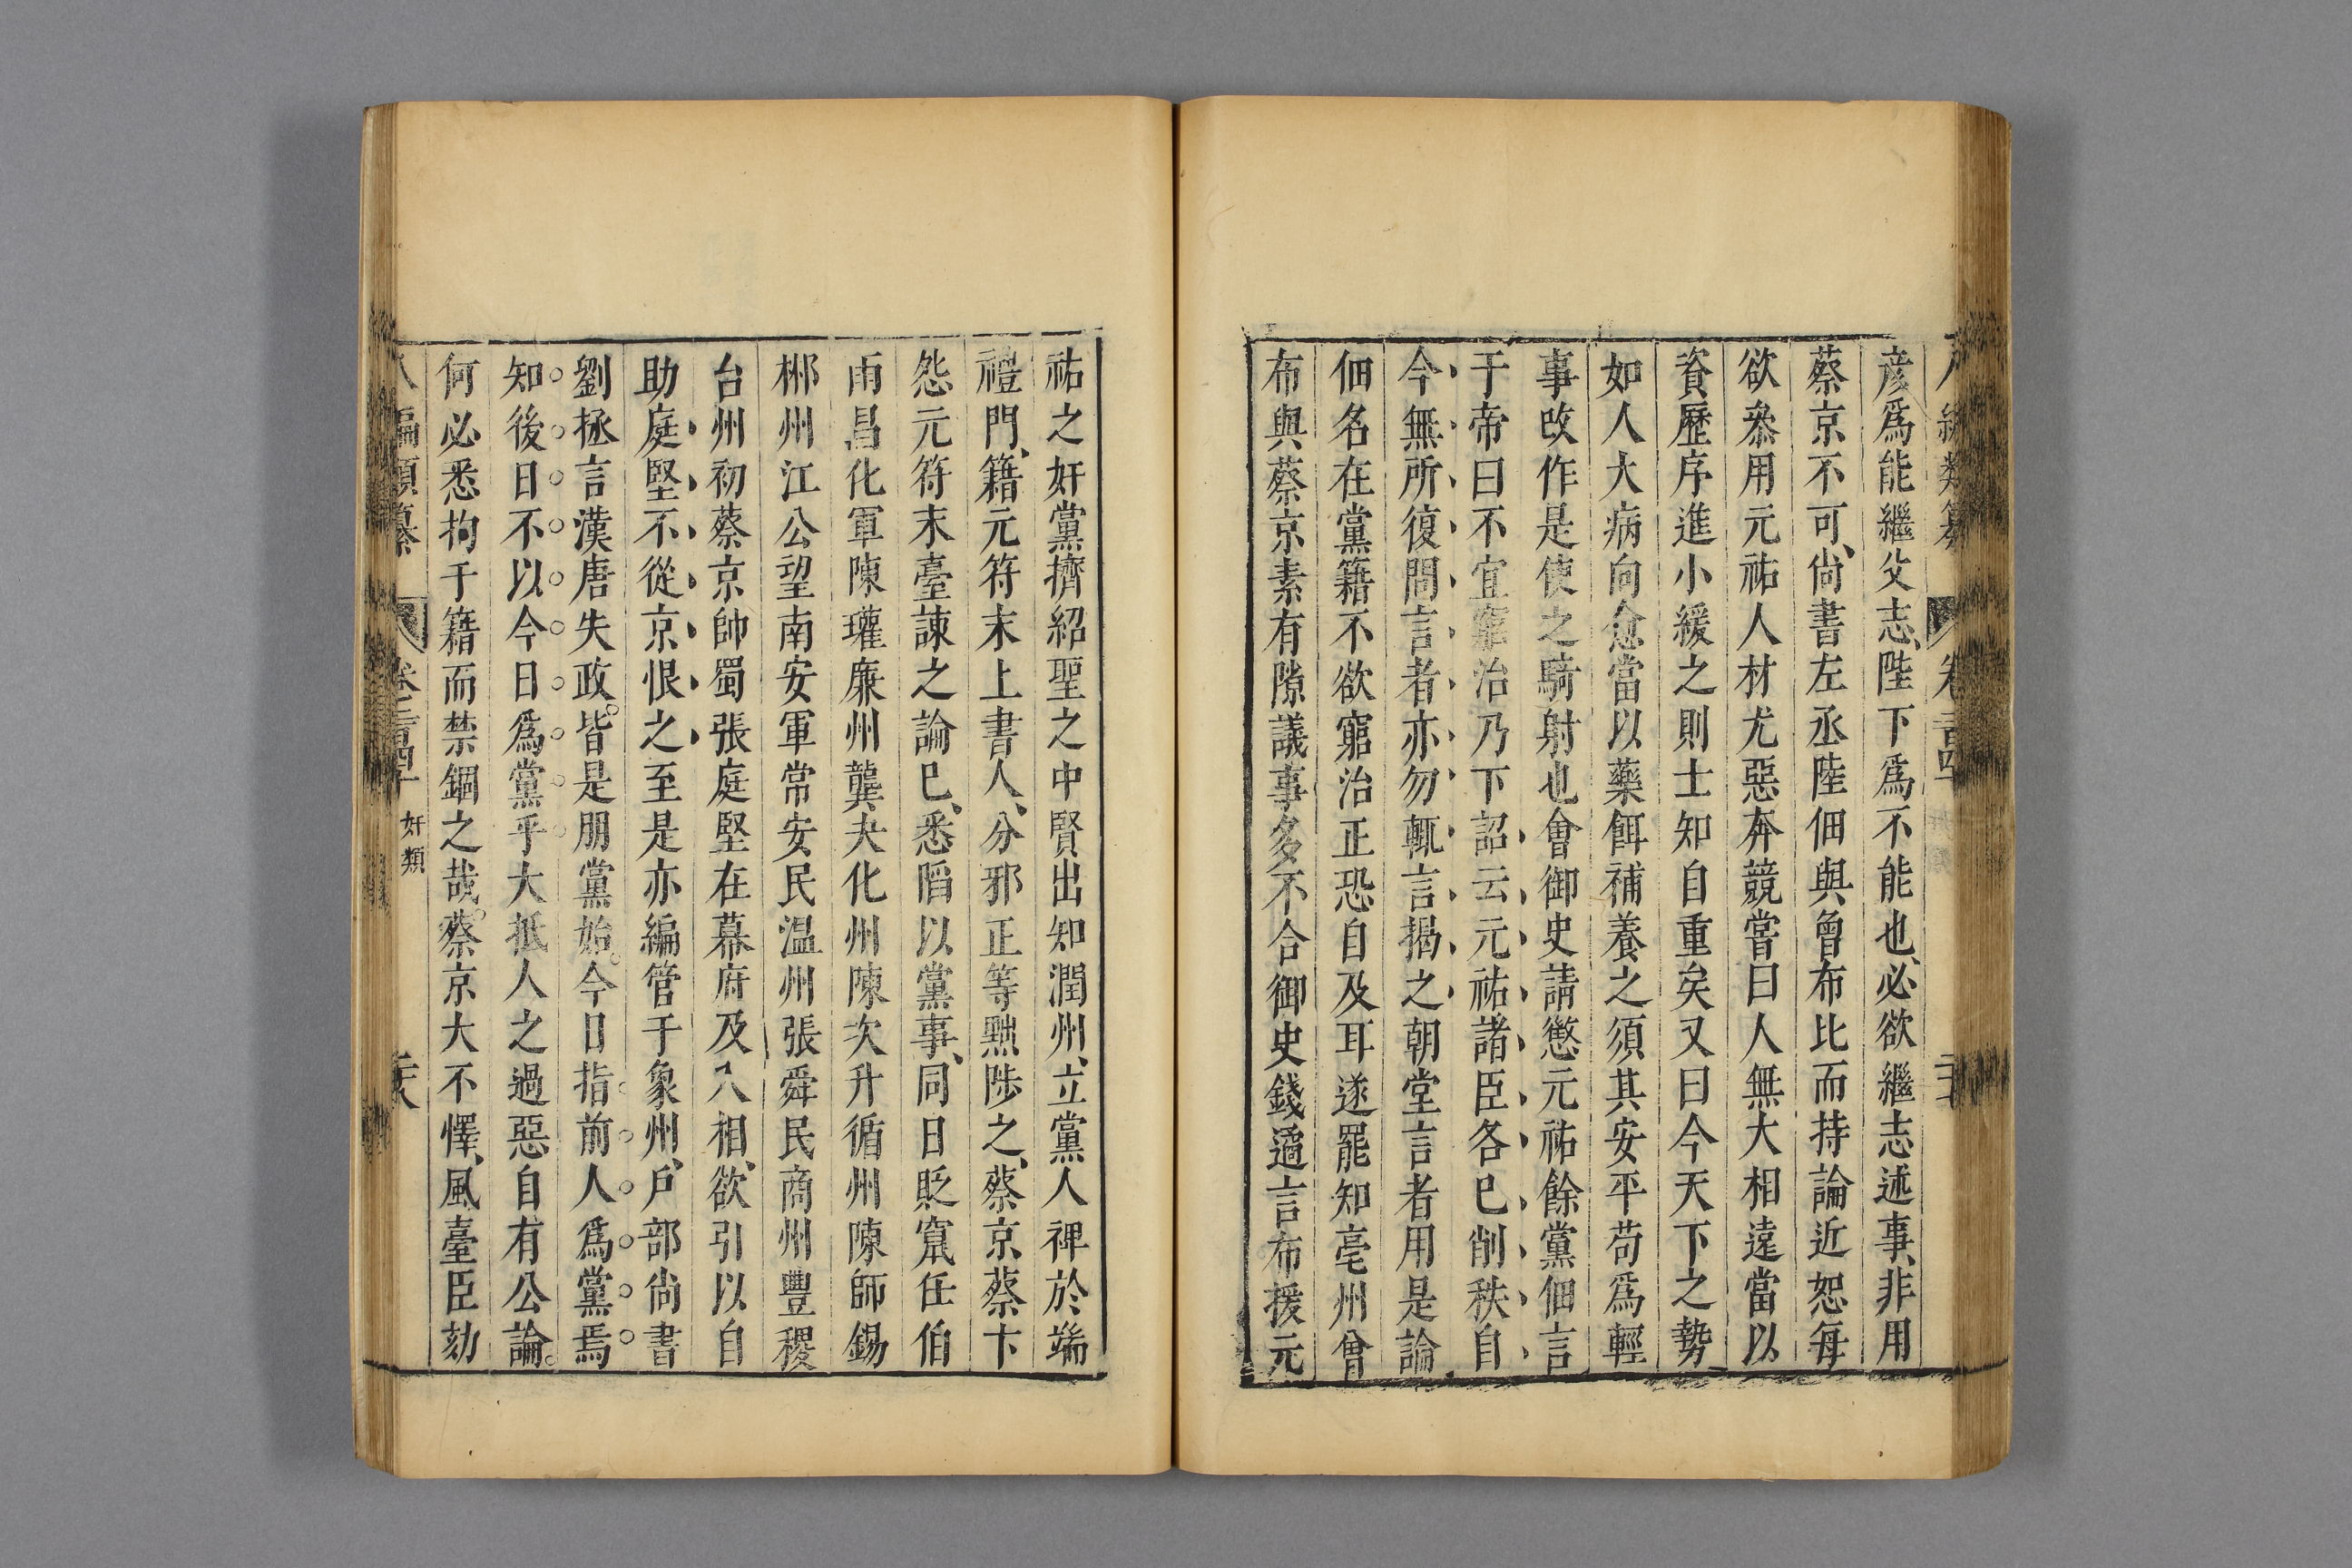 彦爲能繼父志陛下爲不能也必欲繼志述事非用
蔡京不可尙書左丞陸佃與曾布比而持論近恕每
欲叅用元祐人材尤惡奔競嘗曰人無大相遠當以
資歷序進小緩之則士知自重矣又曰今天下之勢
如人大病向愈當以藥餌補養之須其安平苟爲輕
事改作是使之騎射也會御史請懲元祐餘黨佃言
于帝曰不宜窮治乃下詔云元祐諸臣各已削秩自
今無所復問言者亦勿輒言揭之朝堂言者用是論
佃名在黨籍不欲窮治正恐自及耳遂罷知亳州曾
布與蔡京素有隙議事多不合御史錢遹言布援元
祐之奸黨擠紹聖之中賢出知潤州立黨人碑於端
禮門籍元符末上書人分邪正等黜陟之蔡京蔡卞
怨元符末臺諫之論已悉陷以黨事同日貶竄任伯
雨昌化軍陳瓘廉州龔夬化州陳次升循州陳師錫
郴州江公望南安軍常安民溫州張舜民商州豐稷
台州初蔡京帥蜀張庭堅在幕府及入相欲引以自
助庭堅不從京恨之至是亦編管于象州戶部尙書
劉拯言漢唐失政皆是朋黨始今日指前人爲黨焉
知後日不以今日爲黨乎大抵人之過惡自有公論
何必悉拘于籍而禁錮之哉蔡京大不懌風臺臣劾
八編類纂 奸類